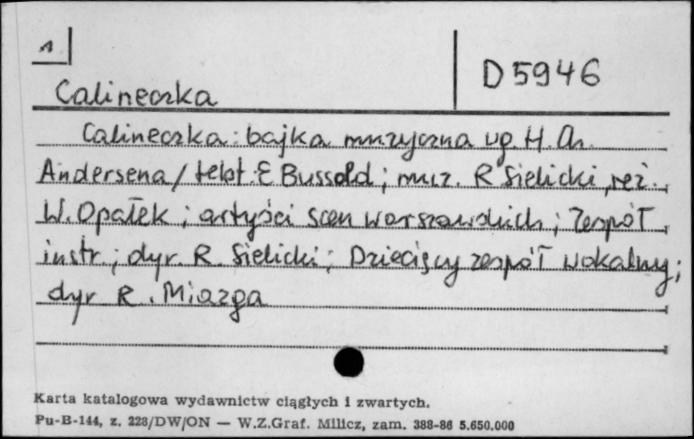 1
D 5946
Calineczka
Calineczka : bajka muzyczna wg H. Ch.
Andersena / tekst. E Bussold ; muz. R Sielicki, reż.
W. Opałek ; artyści scen warszawskich ; Zespół
instr. ; dyr R. Sielicki ; Dziecięcy zespół wokalny ;
dyr R. Miazga
Karta katalogowa wydawnictw ciągłych i zwartych.
Pu-B-144, z. 228/DW/ON — W.Z.Graf. Milicz, zam. 388-86 5.650.000